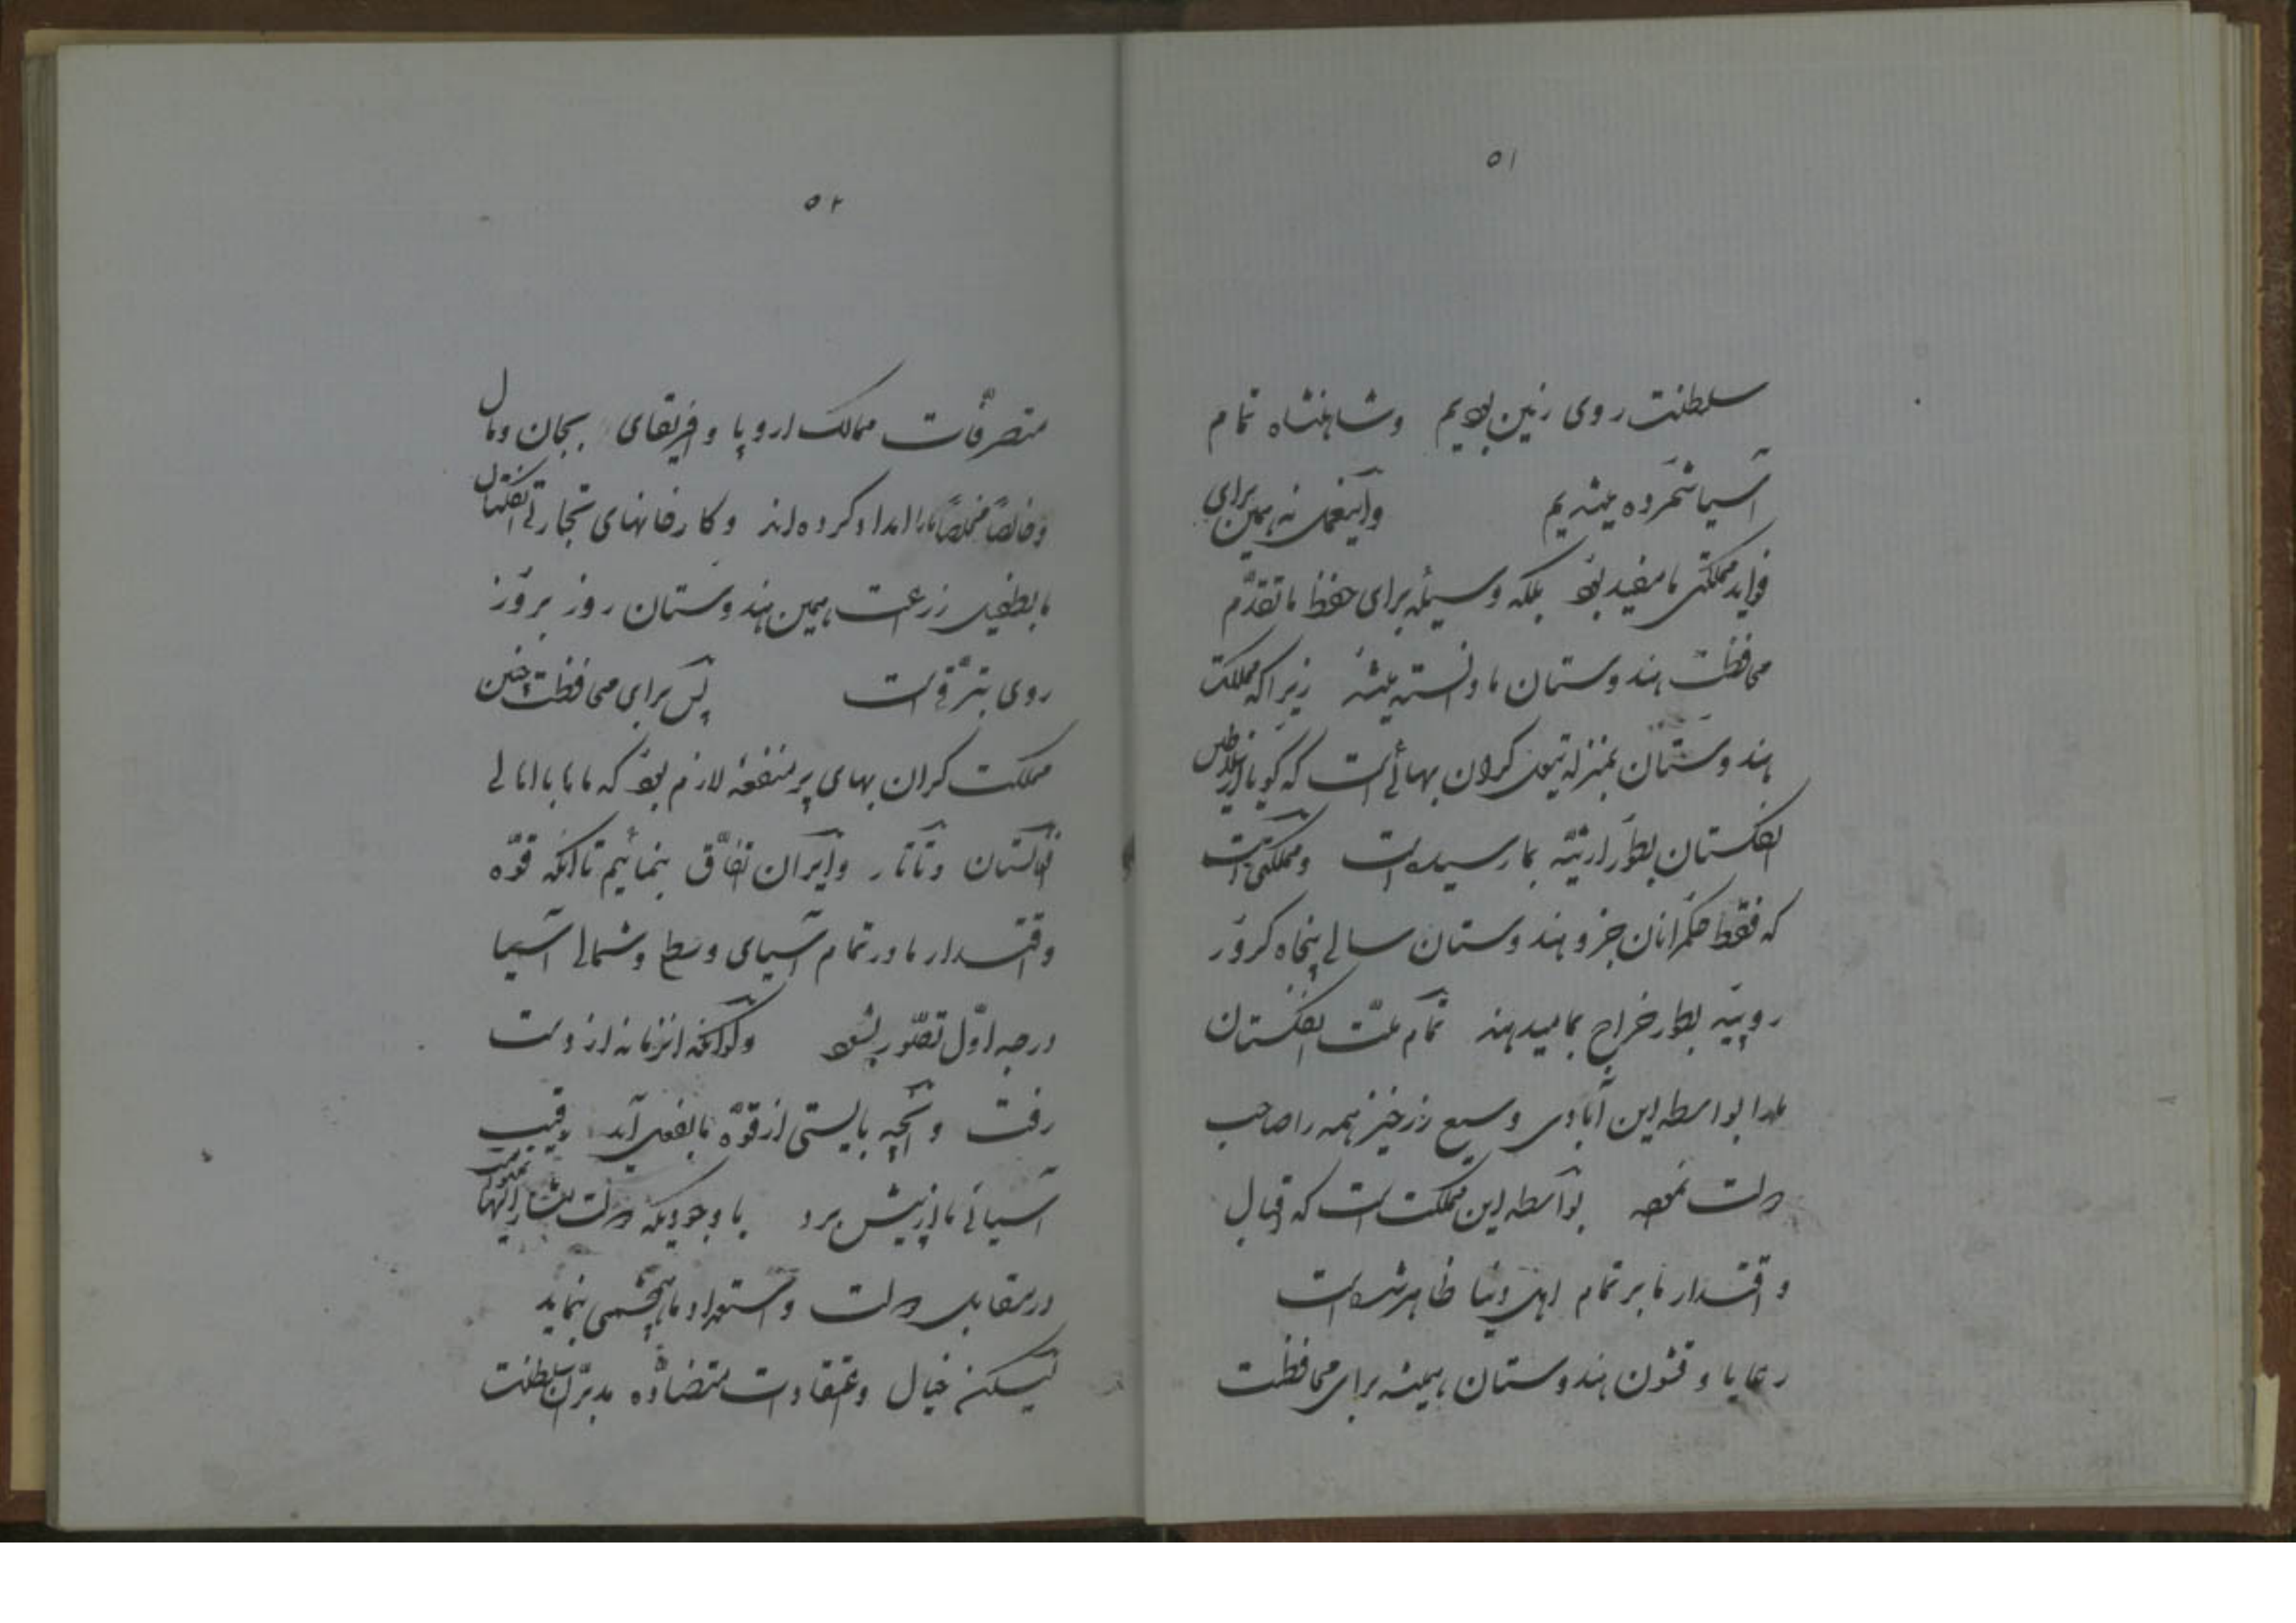 ۵۱
سلطنت روی زمین بودیم وشاهنشاه تمام
آسیا شمرده میشدیم واینعمل نه همین برای
فواید مملکتی ما مفید بود بلکه وسیله برای حفظ ما تقدّم
محافظت هندوستان ما دانسته میشد زیرا که مملکت
هندوستان بمنزله تیول گران بهائی است که گویا از
انگستان بطور ارثیّه بما رسیده است ومملکتی است
که فقط حکمرانان جزو هندوستان سالی پنجاه کرور
روپیّه بطور خراج بما میدهند تمام ملّت انگستان
ما را بواسطه این آبادی وسیع زرخیز همه را صاحب
دولت نموده بواسطه این مملکت است که اقبال
و اقتدار ما بر تمام اهل دنیا ظاهر شده است
رعایا و قشون هندوستان همیشه برای محافظت
۵۲
متصرّفات ممالک اروپا و افریقای بجان ومال
وخالصاً مخلصاً ما را امداد کرده اند وکارخانهای تجارتی انگلستان
ما بطفیل زرعت همین هندوستان روز بروز
روی بترّقی است پس برای محافظت چنین
مملکت گران بهای پر منفعة لازم بود که ما با اهالی
وتاتار وایران اتفّاق بنمائیم تا آنکه قوّه
واقتدار ما در تمام آسیای وسط وشمالی آسیا
درجه اوّل تصّور بشود ولو آنکه انزمانه از دست
رفت وآنچه بایستی از قوّه بالفعل آید رقیب
آسیائی ما از پیش برد با وجودیکه دولت مشار الیها
در مقابل دولت واستعداد ما همچشمی بنماید
لیکن خیال واعتقادات متضادّه مدبّران سلطنت